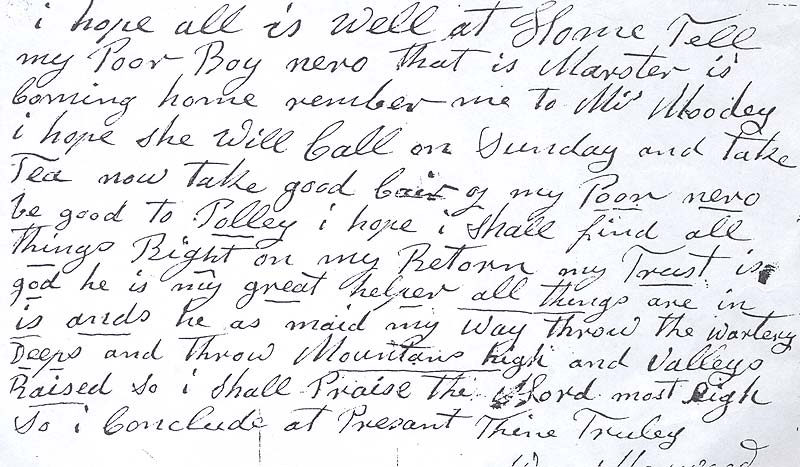 i hope all is well at Home Tell
my Poor Boy nero that is Marster is
Coming home rember me to Mis Moodey
i hope she will Call on Sunday and take
Tea now take good Cair of my Poor nero
be good to Polley i hope i shall find all
things Right on my Retorn my Trust is
god he is my great helper all things are in
is ands he as maid my way throw the wartery
Deeps and throw Mountans high and Valleys
Raised so i shall Praise the Lord most high
So i Conclude at Presant Thine Truley